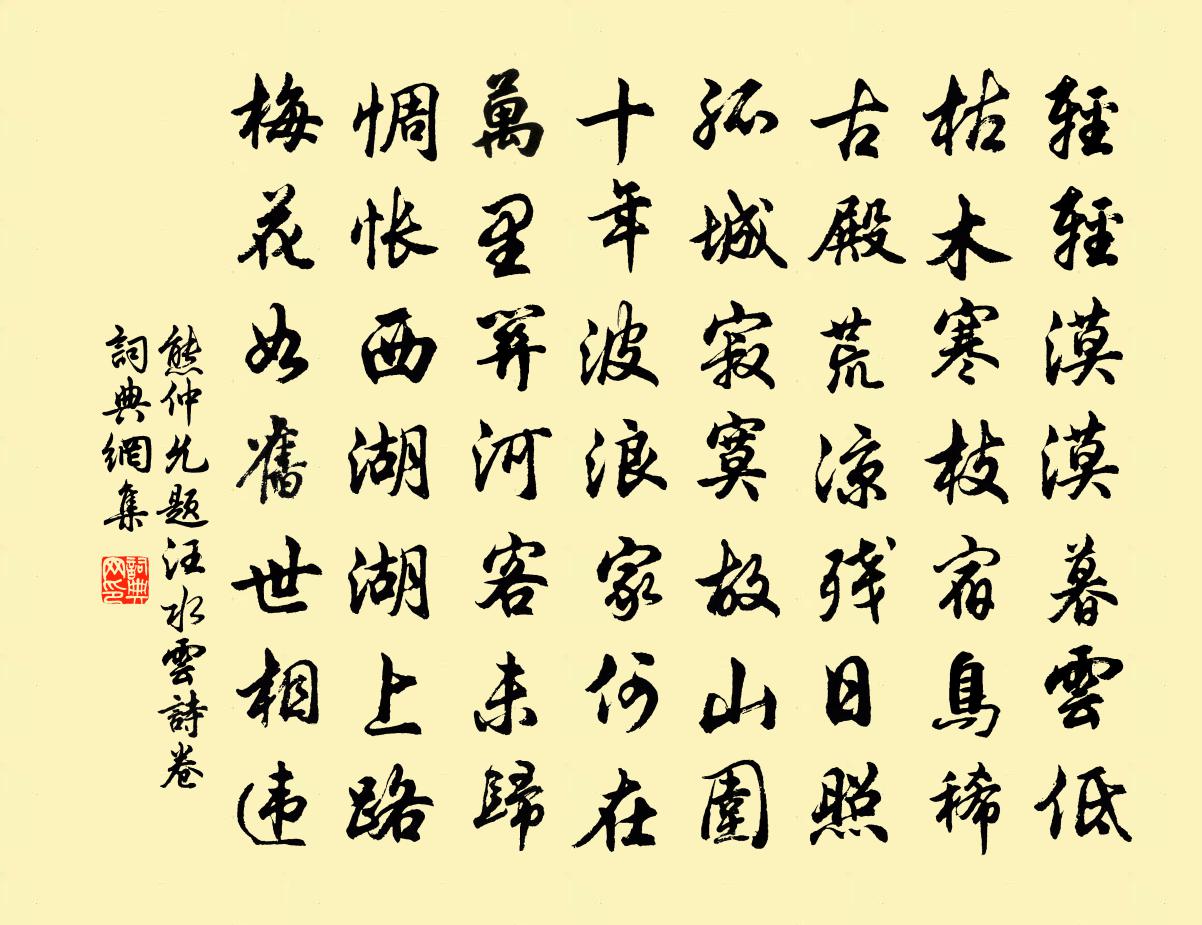 輕輕漠漠暮雲低
枯木寒枝宿鳥稀
古殿荒涼残日照
孤城寂寞故山圍
十年波浪家何在
萬里關河客未歸
惆怅西湖湖上路
梅花如舊世相違
熊仲允题汪水雲詩卷
詞典網集
詞典網印